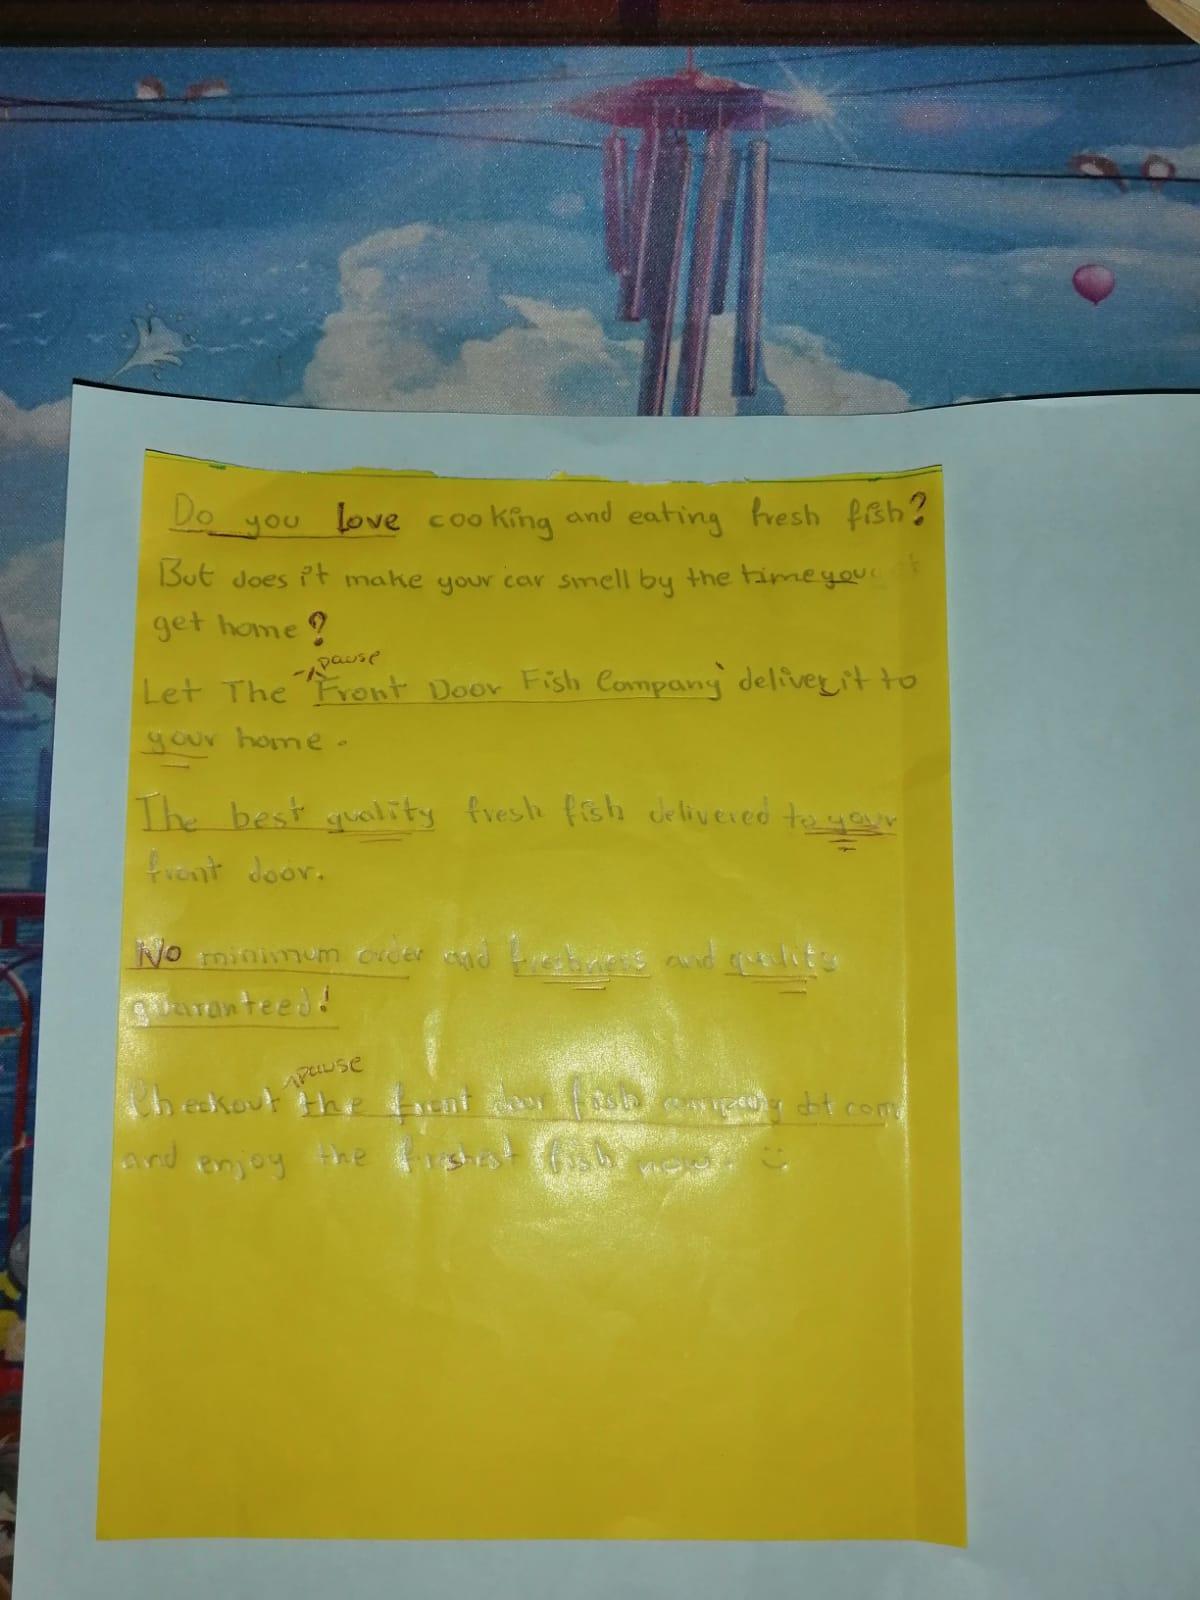 Do you love cooking and eating fresh fish?
But does it make your car smell by the time you
get home?
pause
Let The Front Door Fish Company deliver it to
your home.
The best quality fresh fish delivered to your
front door.
No minimum order and freshness and quality
guaranteed!
pause
Checkout the front door fish company dot com
and enjoy the freshest fish now. :)